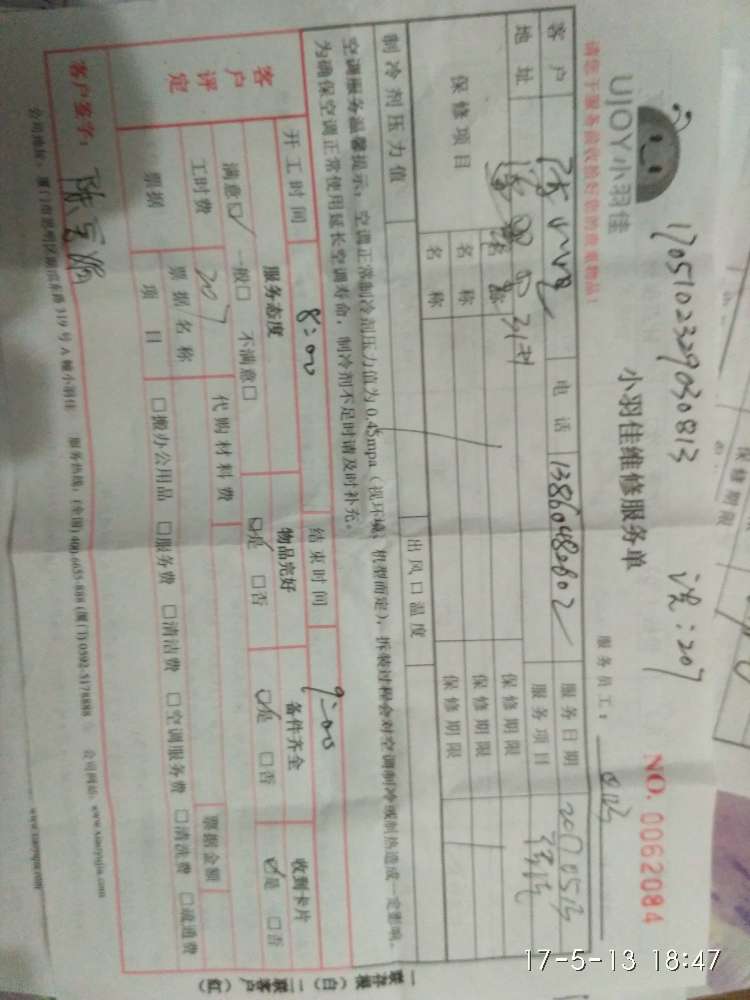 UJOY小羽佳
1705102329030813
洗:207
小羽佳维修服务单
NO. 0062084
请您于服务前收捡好您的贵重物品!
服务员工:
客户
电话 13860480602
服务日期 20170513
地址
服务项目 清洗
保修项目
名称
保修期限
名称
保修期限
名称
保修期限
制冷剂压力值
出风口温度
空调服务温馨提示:空调正常制冷剂压力值为0.45mpa(视环境、机型而定),拆装过程会对空调制冷或制热造成一定影响。
为确保空调正常使用延长空调寿命,制冷剂不足时请及时补充。
开工时间 8:00 结束时间 9:00
客户评定
服务态度 物品完好 备件齐全 收到卡片
满意☑ 一般□ 不满意□ ☑是 □否 ☑是 □否 ☑是 □否
工时费 207 代购材料费
票据 票据名称 票据金额
项目 □搬办公用品 □服务费 □清洁费 □空调服务费 □清洗费 □疏通费
客户签字:
公司地址:厦门市思明区 319号A幢小羽佳 服务热线:(全国)400-6655-888 (厦门)0592-5178888 公司网站:www.xiaoyujia.com
www.xiaoyujia.com
一联存根(白) 二联客户(红)
保修期限
17-5-13 18:47